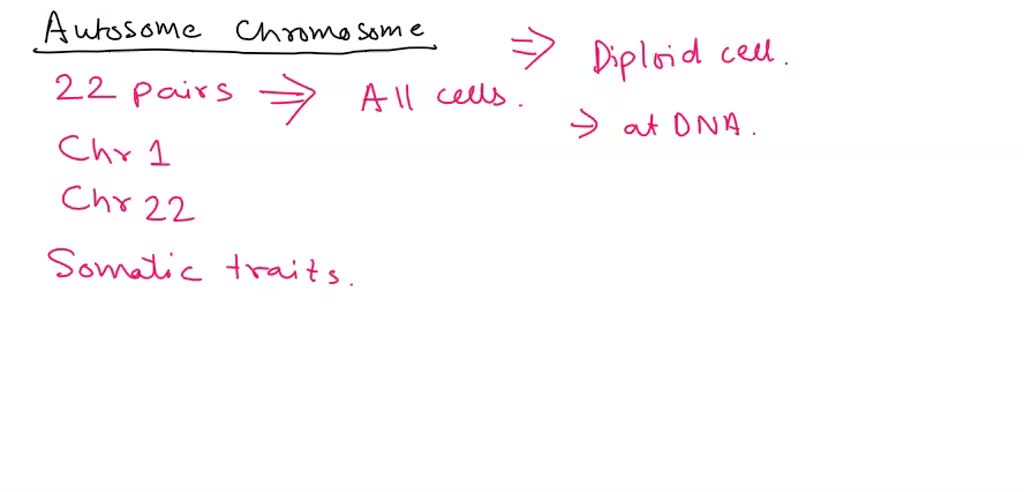 Autosome Chromosome
22 pairs ⇒ All cells.
Chr 1
Chr 22
Somatic traits.
⇒ Diploid cell.
→ at DNA.